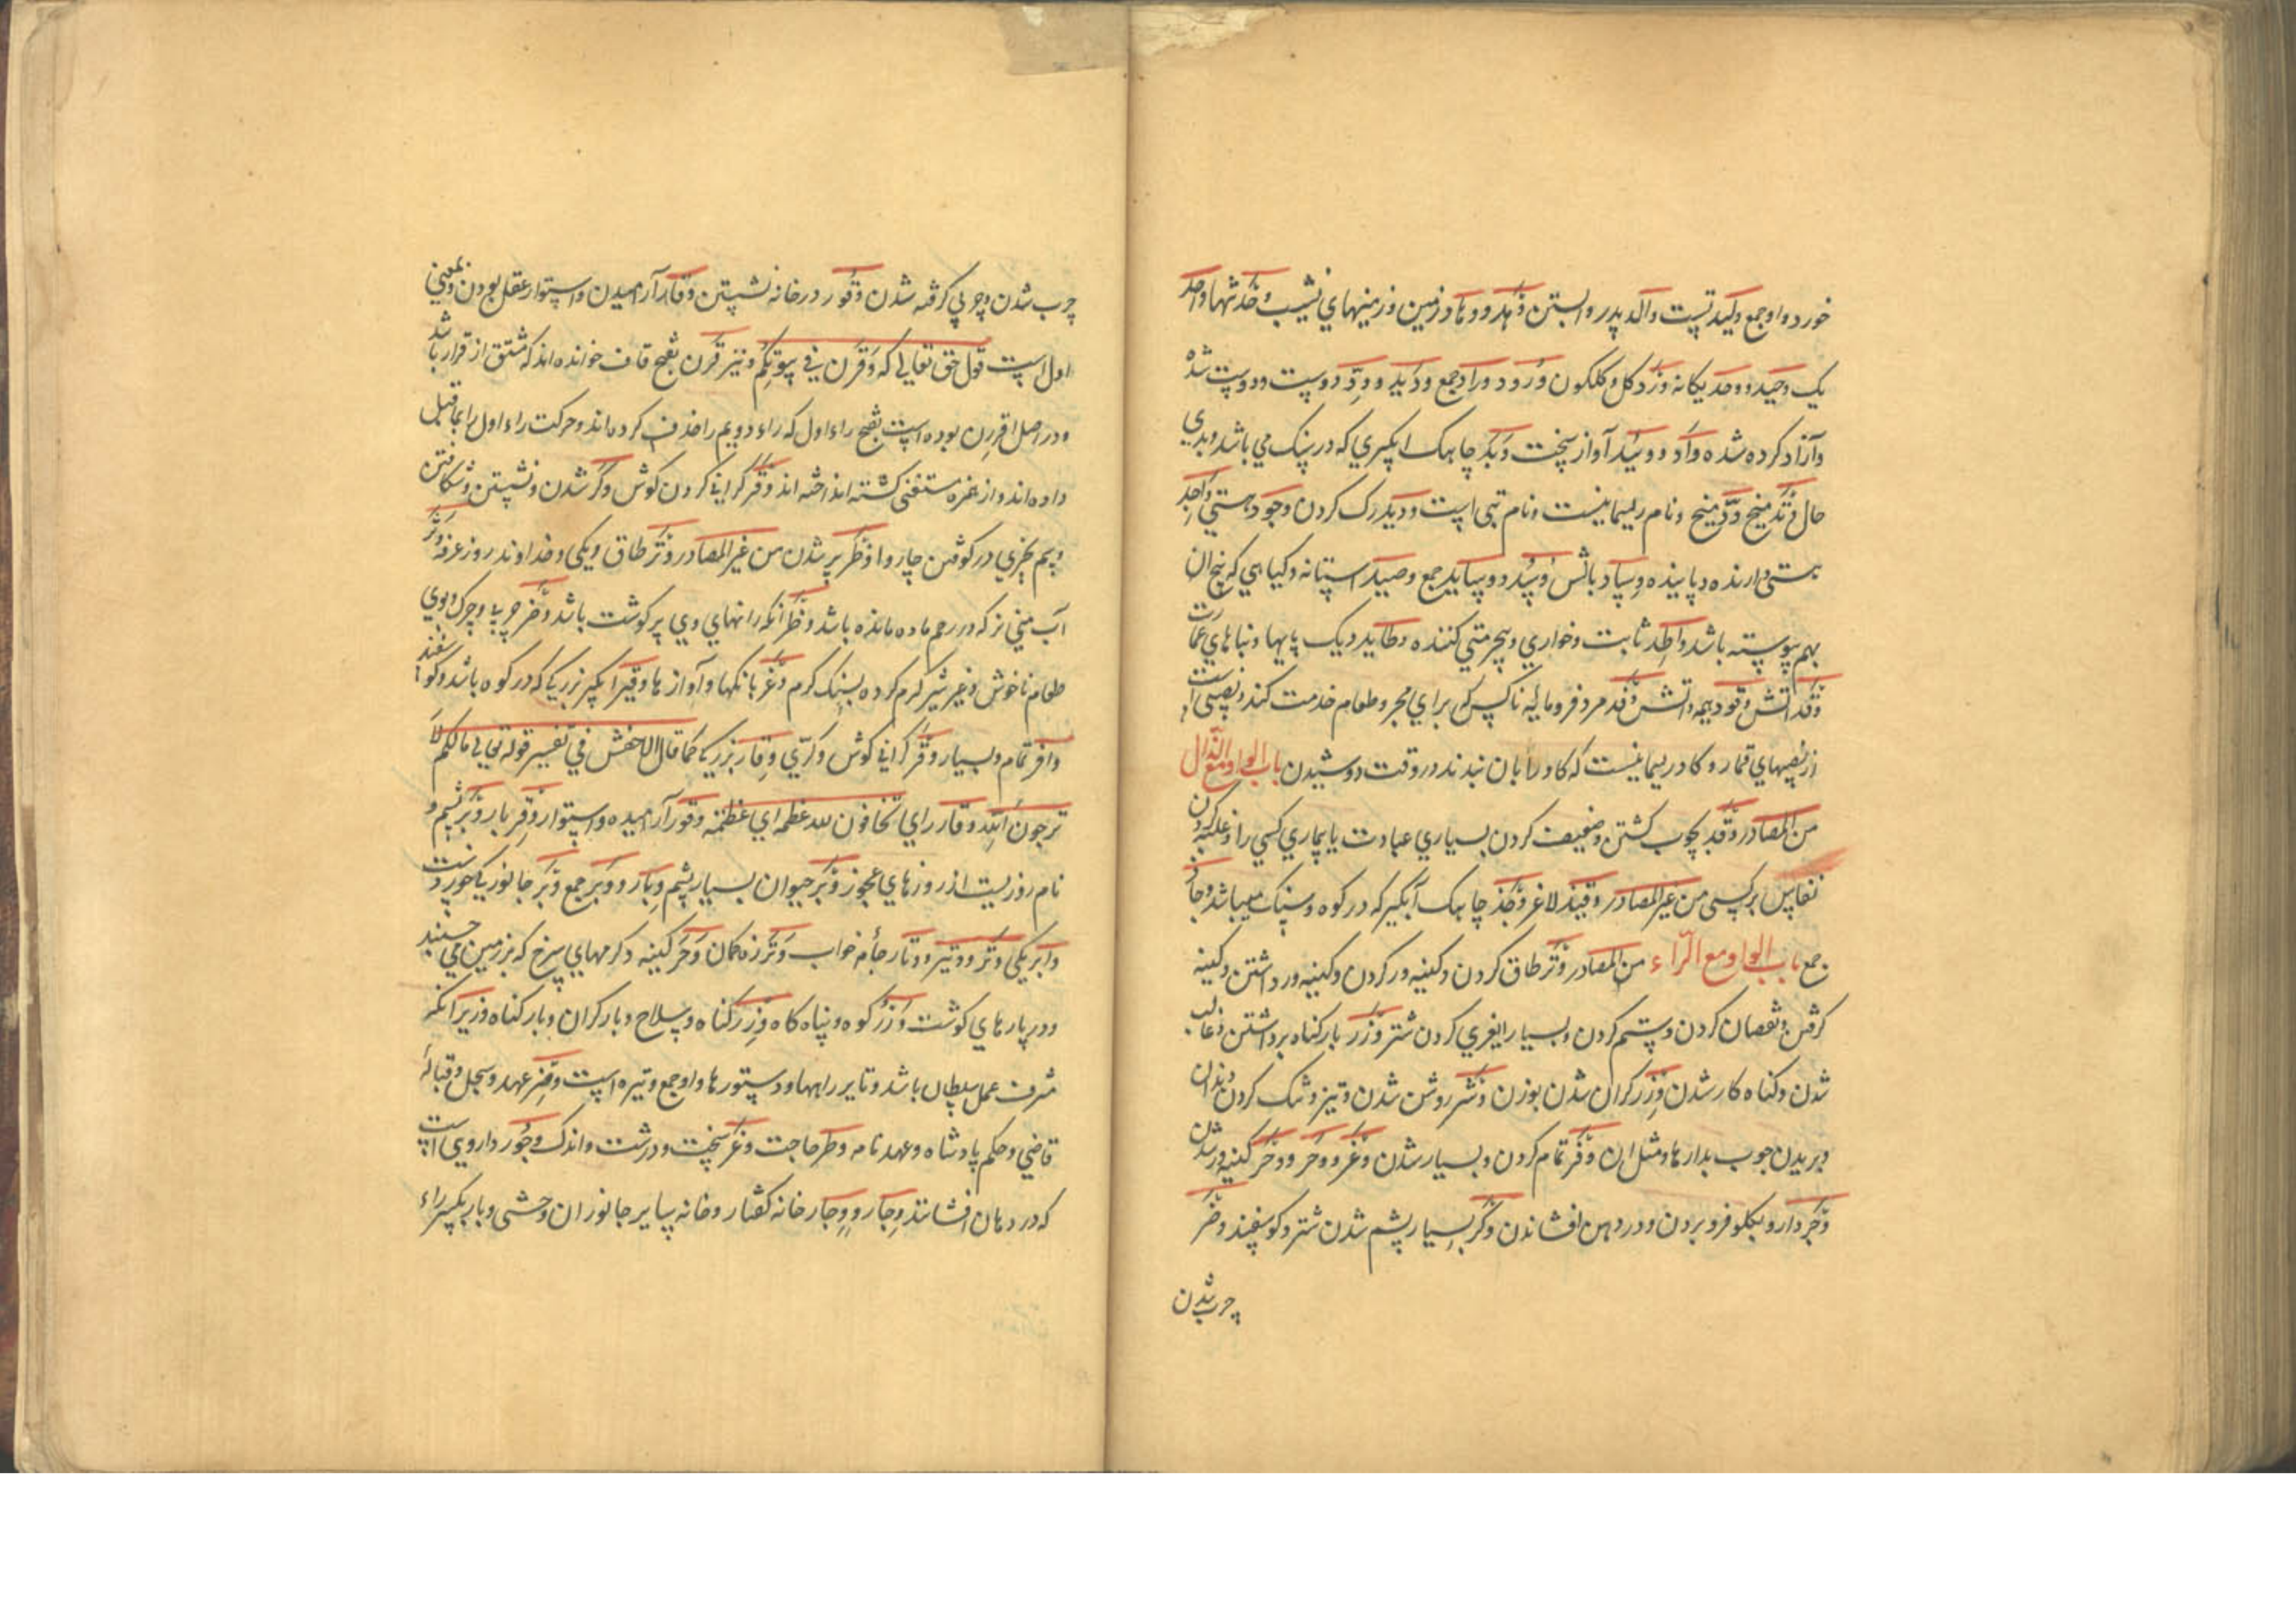 خورد و او جمع ولید تست والد پدر و ابستن وهد و وهاد زمین و زمینهای نشیب وخد تنها واحد
یک وحید و وحد یکانه ورد کل و کلکون ورود و وراد جمع ودید و ود دوست و دوست شده
وآزاد کرده شده وأد و وئید آواز سخت وبد چاهک ابکیری که در سنک می باشد وبدی
حال وتد میخ ود میخ ونام ریسمانیست ونام بتی است ودید درک کردن وجود هستی واجد
هستی دارنده و یابنده وساد بالش وسد و وساید جمع وصید استانه و کیاهی که بیخ ان
بهم پیوسته باشد واطد ثابت و خواری و بیحرمتی کننده وطاید دیک پایها و بناهای عمارت
وقد اتش وقود هیمه و اتش وغد مرد فرومایه ناکس که برای مجرد طعام خدمت کند و نصیبی است
از نصیبهای قمار و کاو ریسمانیست که کاو را بان بندند در وقت دوشیدن باب الواو مع الذال
من المصادر وقذ بچوب کشتن و ضعیف کردن بسیاری عبادت یا بیماری کسی را و غلبه کردن
نعاس بر کسی من غیر المصادر وقیذ لاغر وجذ چاهک آبکیر که در کوه و سنک میباشد وجاذ
جمع باب الواو مع الراء من المصادر وتر طاق کردن و کینه ور کردن و کینه ور داشتن و کینه
کرفتن و نقصان کردن و ستم کردن و بسیار ایغری کردن شتر وزر بار کناه برداشتن و غالب
شدن و کناه کار شدن وزر کران شدن بوزن وشر روشن شدن و تیز و تنک کردن دندان
و بریدن چوب بداره و مثل ان وفر تمام کردن و بسیار شدن وغر و وحر و وخر کینه ور شدن
وجر دارو بکلو فرو بردن و در دهن افشاندن وکر بسیار پشم شدن شتر و کوسفند وضر
چرب شدن
چرب شدن و چربی کرفته شدن وقور در خانه نشستن وقار آرامیدن و استوار عقل بودن و بمعنی
اول است قول حق تعالی که وقرن فی بیوتکن و نیز قرن بفتح قاف خوانده اند که مشتق از قرار باشد
و در اصل اقررن بوده است بفتح راء اول که راء دویم را حذف کرده اند و حرکت راء اول را بماقبل
داده اند و از همزه مستغنی کشته انداخته اند وقر کرانی کردن کوش وکر شدن و نشستن و شکافتن
و سم چیزی در کوفتن چاروا وظر پر شدن من غیر المصادر وتر طاق و یکی و خداوند و روز عرفه وتر
آب منی نر که در رحم ماده مانده باشد وظر آنکه رانهای وی پر کوشت باشد وضر چربی و چرک و بوی
طعام ناخوش وغیر شیر کرم کرده بسنک کرم وغر بانکها و آوازها وقیر ابکیر بزرکی که در کوه باشد و کوسفند
وافر تمام و بسیار وقر کرانی کوش وکری وقار بزرکی کما قال الاخفش فی تفسیر قوله تعالی مالکم لا
ترجون لله وقارا ای تخافون لله عظمة ای عظمته وقور آرامیده و استوار وقر بار وبر پشم و
نام روزیست از روزهای عجوز وبر حیوان بسیار پشم وبار و وبر جمع وبر جانوریکه خوردنست
وابر یکی وتر و وتیر و وثار جأمه خواب وتر زه کمان وحر کینه و کرمهای سرخ که بزمین می چسبند
و در پارهای کوشت وزر کوه و پناه کاه وزر کناه و سلاح و بار کران و بار کناه وزیر آنکه
شرف عمل سلطان باشد وتایر راهها و دستورها و او جمع وتیره است وصر عهد و سجل و قبالۀ
قاضی و حکم پادشاه و عهد نامه وطر حاجت وعر سخت و درشت و اندک وجور داروی است
که در دهان افشانند وجار و وجار خانه کفتار و خانه سایر جانوران وحشی وبار بکسر راء